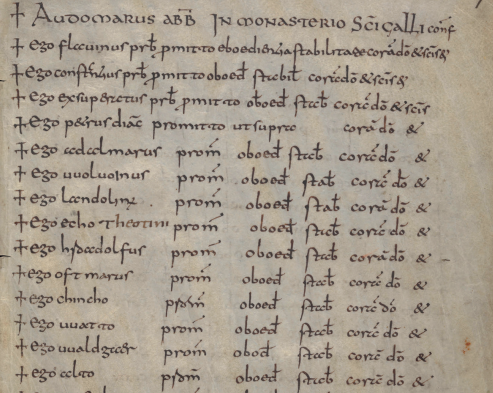 + AUDOMARUS ABB̅ IN MONASTERIO SC̅I GALLI conf
+ ego flavinus prb̅ pmitto eboediencia stabilitate corā dō & scis &
+ ego prb̅ pmit to oboed̅ stab̅ corā dō & scis &
+ ego exsuperatus prb̅ pmit to oboed̅ stab̅ corā dō & scis
+ ego petrus diac̅ promitto ut supra corā dō &
+ ego adalmarus prom̅ oboed̅ stab̅ corā dō &
+ ego uuoluoinus prom̅ oboed̅ stab̅ corā dō &
+ ego landolinx prom̅ oboed̅ stab̅ corā dō &
+ ego echo theotini prom̅ oboed̅ stab̅ corā dō &
+ ego hrdadolfus prom̅ oboed̅ stab̅ corā dō &
+ ego oftmarus prom̅ oboed̅ stab̅ corā dō &
+ ego chincho prom̅ oboed̅ stab̅ corā dō &
+ ego uuatto prom̅ oboed̅ stab̅ corā dō &
+ ego uualdgaer prom̅ oboed̅ stab̅ corā dō &
+ ego alto prom̅ oboed̅ stab̅ corā dō &